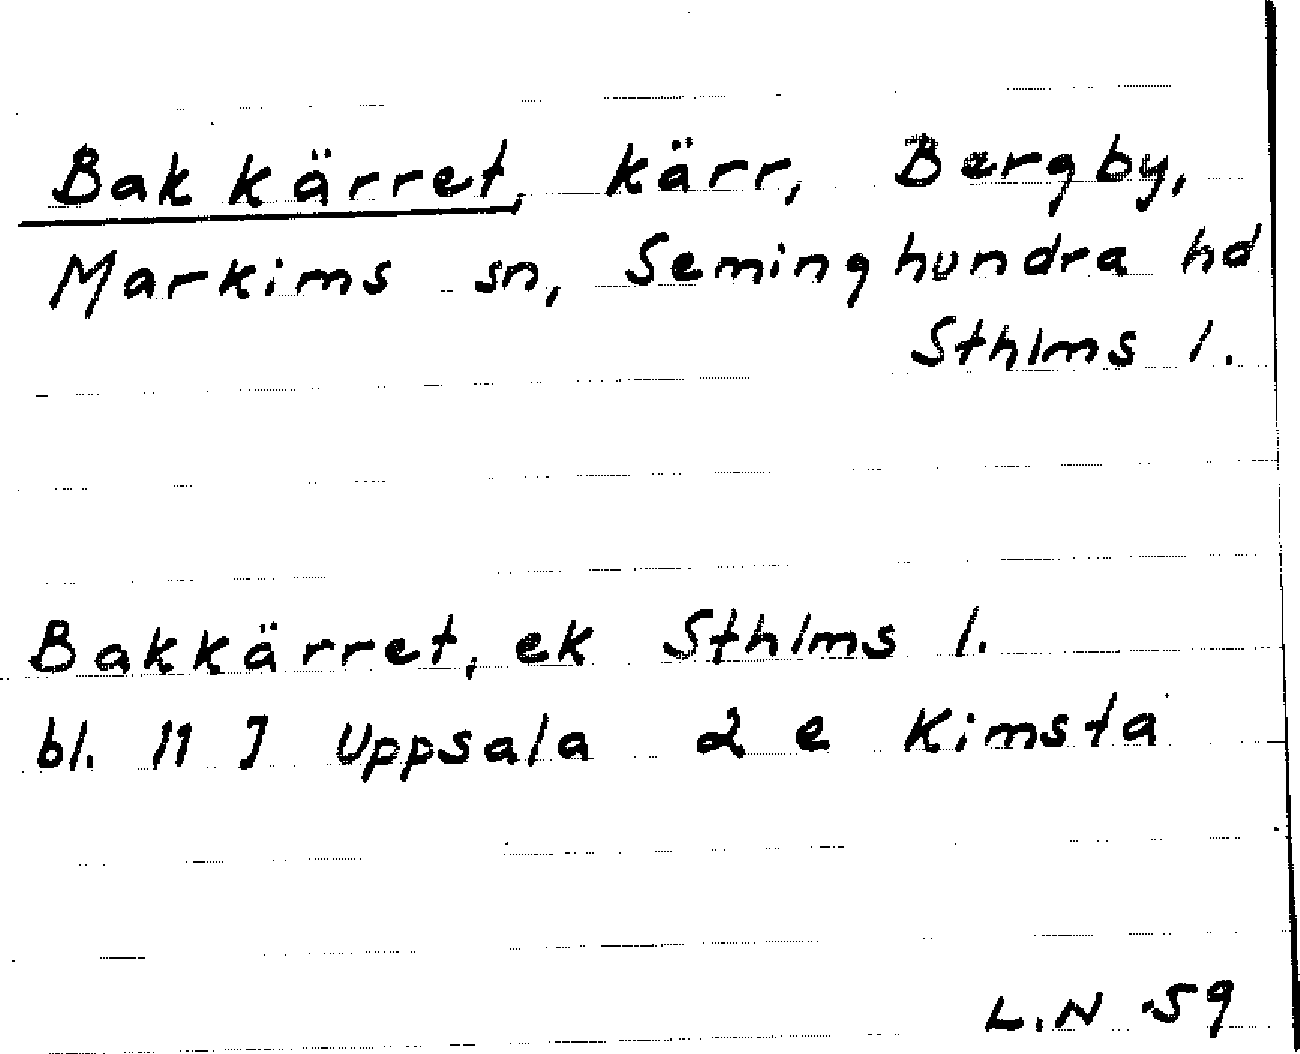 Bakkärret, kärr, Bergby,
Markims sn, Seminghundra hd
Sthlms l.
Bakkärret, ek Sthlms l.
bl. 11 J Uppsala 2 e Kimsta
L.N 59